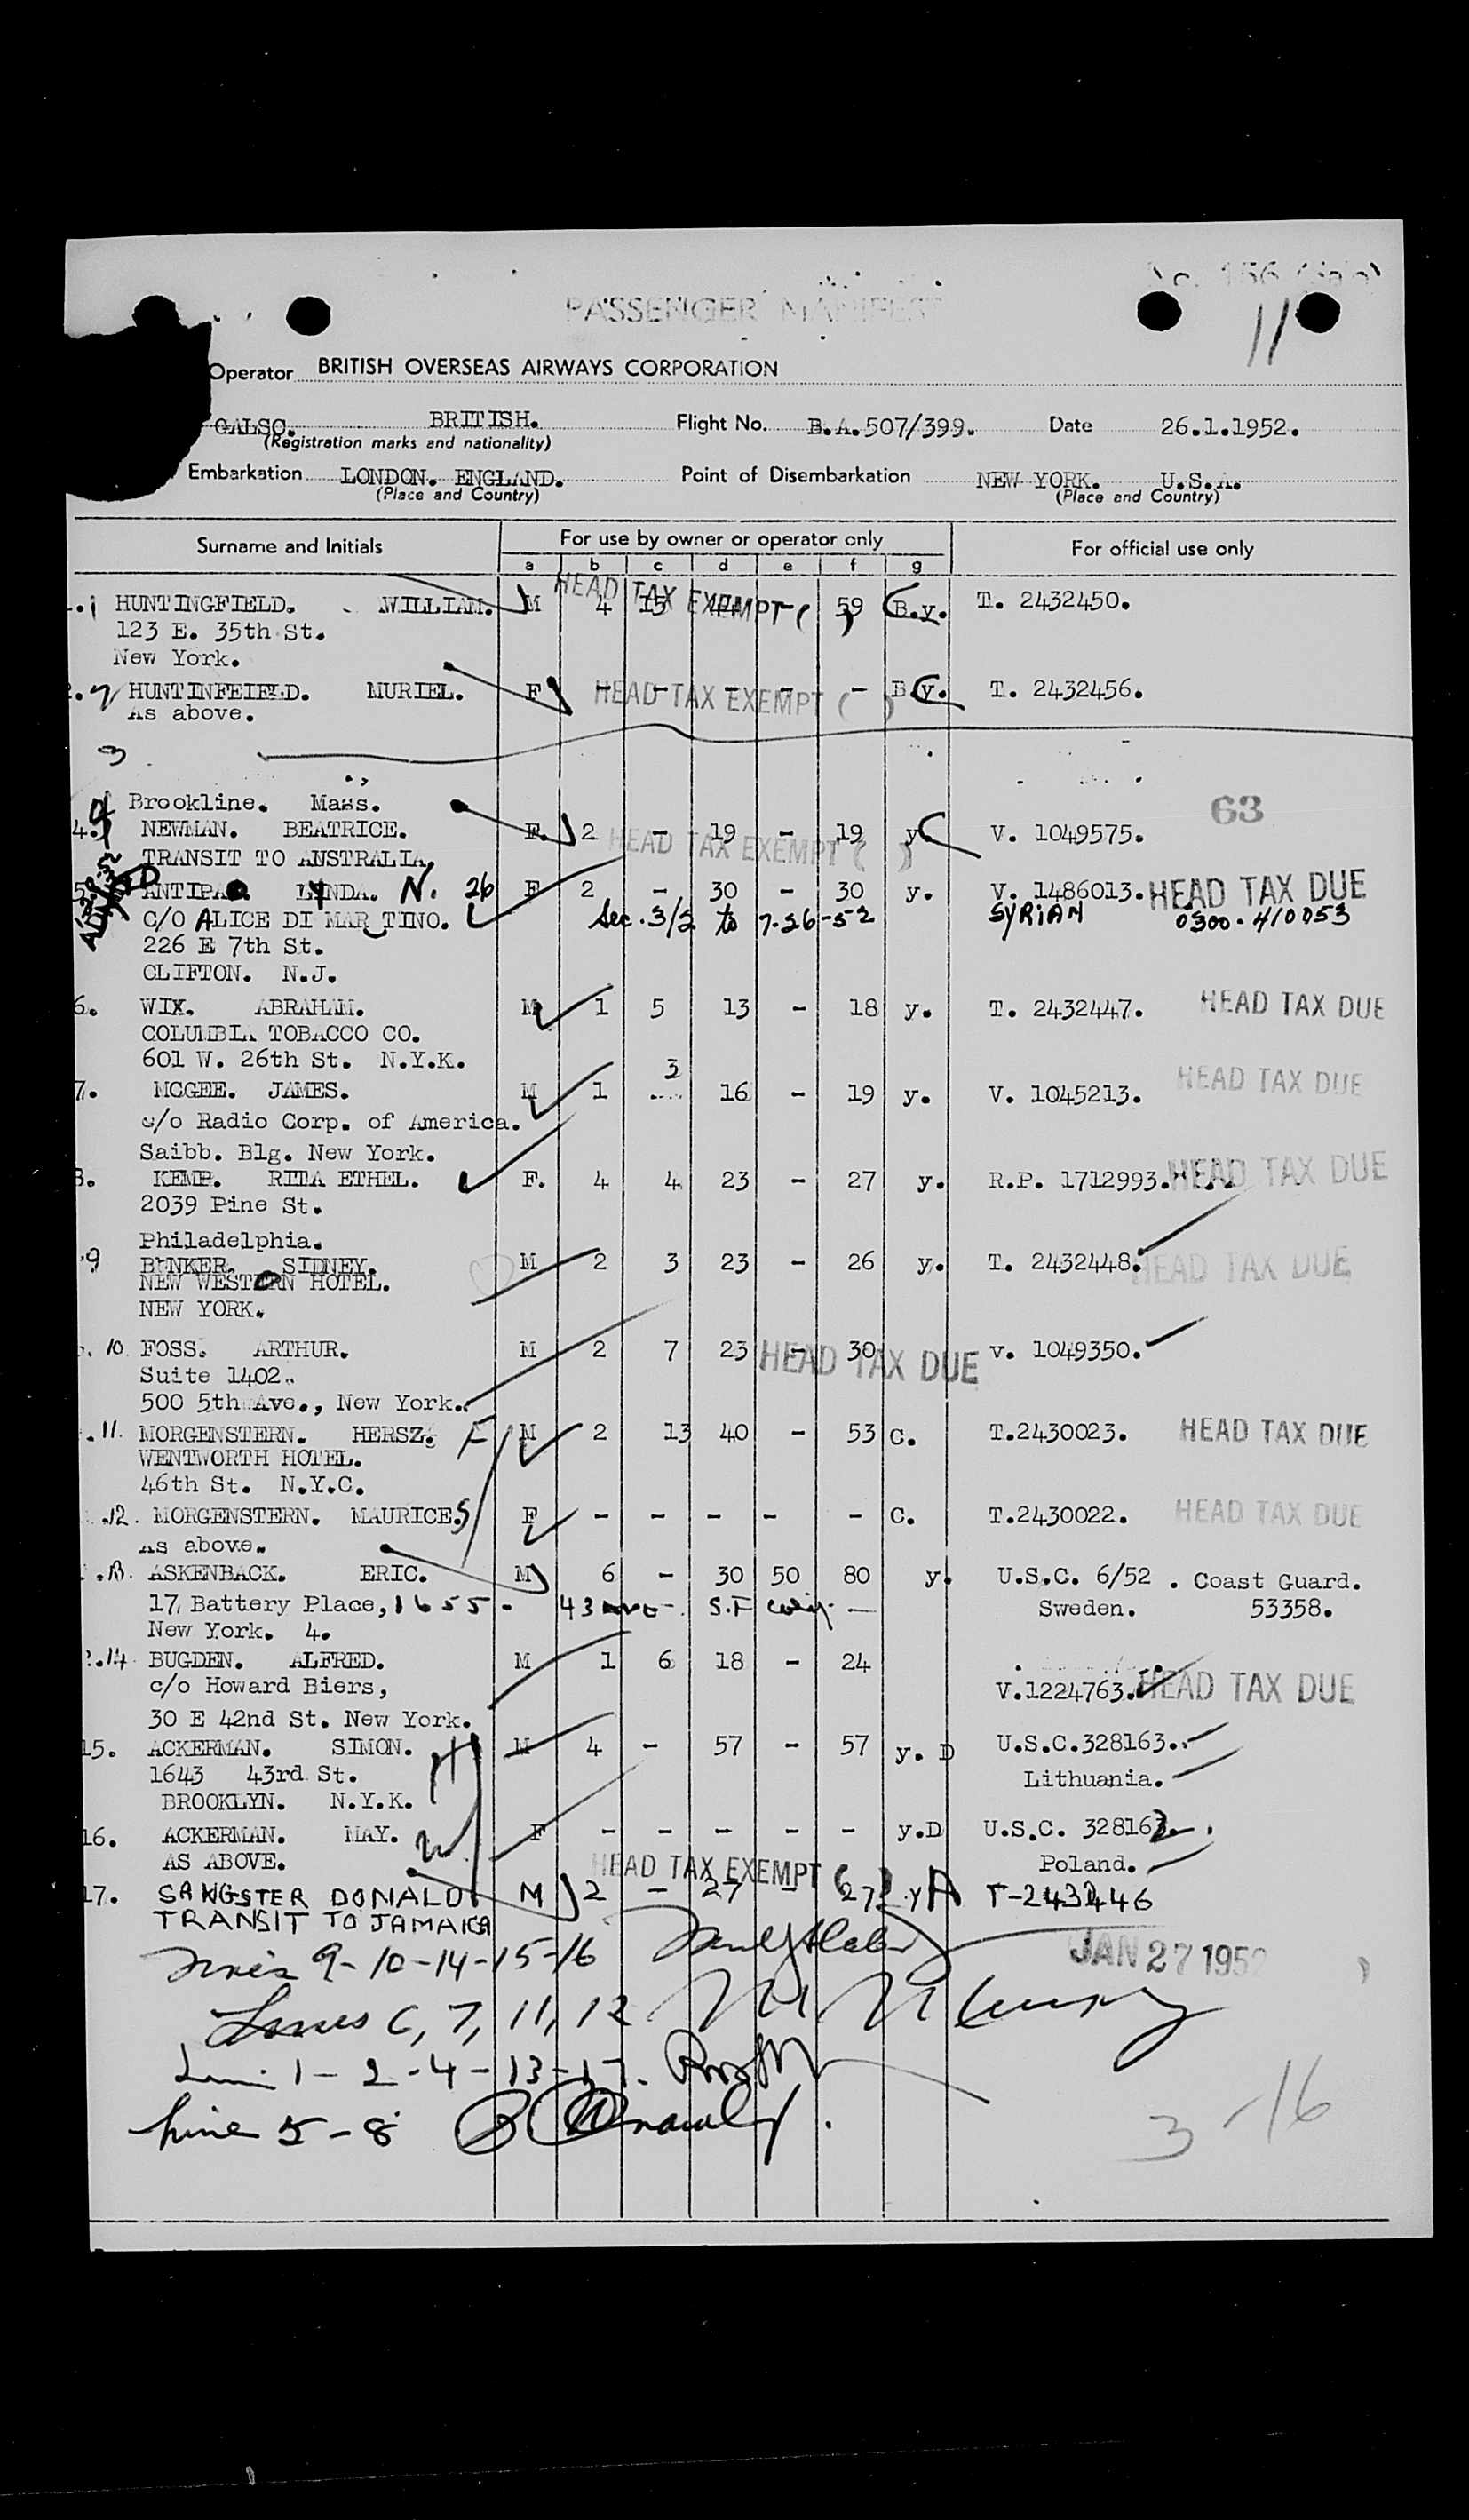 PASSENGER MANIFEST
11
Operator BRITISH OVERSEAS AIRWAYS CORPORATION
GALSC. BRITISH. Flight No. B.A.507/399. Date 26.1.1952.
(Registration marks and nationality)
Embarkation LONDON. ENGLAND. Point of Disembarkation NEW YORK. U.S.A.
(Place and Country) (Place and Country)
Surname and Initials For use by owner or operator only For official use only
a b c d e f g
HEAD TAX EXEMPT ( )
1 HUNTINGFIELD. WILLIAM. M 4 15 44 - 59 B.y. T. 2432450.
123 E. 35th St.
New York.
2 HUNTINFEIELD. MURIEL. F - - - - - B.y. T. 2432456.
HEAD TAX EXEMPT ( )
As above.
3
Brookline. Mass.
63
4. NEWMAN. BEATRICE. F. 2 - 19 - 19 y V. 1049575.
HEAD TAX EXEMPT ( )
TRANSIT TO ANSTRALIA.
5 ANTIPA LYNDA. N. 26 F 2 - 30 - 30 y. V. 1486013. HEAD TAX DUE
C/O ALICE DI MARTINO. Sec. 3/2 to 7-26-52 SYRIAN 0300-410053
226 E 7th St.
CLIFTON. N.J.
6. WIX. ABRAHAM. M 1 5 13 - 18 y. T. 2432447. HEAD TAX DUE
COLUMBIA TOBACCO CO.
601 W. 26th St. N.Y.K.
7. MCGEE. JAMES. M 1 3 16 - 19 y. V. 1045213. HEAD TAX DUE
c/o Radio Corp. of America.
Saibb. Blg. New York.
8. KEMP. RITA ETHEL. F. 4 4 23 - 27 y. R.P. 1712993. HEAD TAX DUE
2039 Pine St.
Philadelphia.
9 BUNKER. SIDNEY. M 2 3 23 - 26 y. T. 2432448. HEAD TAX DUE
NEW WESTORN HOTEL.
NEW YORK.
10 FOSS. ARTHUR. M 2 7 23 - 30 HEAD TAX DUE v. 1049350.
Suite 1402.
500 5th Ave., New York.
11. MORGENSTERN. HERSZ. F M 2 13 40 - 53 C. T.2430023. HEAD TAX DUE
WENTWORTH HOTEL.
46th St. N.Y.C.
12. MORGENSTERN. MAURICE. S F - - - - - C. T.2430022. HEAD TAX DUE
As above.
13. ASKENBACK. ERIC. M 6 - 30 50 80 y. U.S.C. 6/52 . Coast Guard.
17, Battery Place, 1655 - 43 ave. S.F Calif. Sweden. 53358.
New York. 4.
14 BUGDEN. ALFRED. M 1 6 18 - 24
c/o Howard Biers, V.1224763. HEAD TAX DUE
30 E 42nd St. New York.
15. ACKERMAN. SIMON. H M 4 - 57 - 57 y. D U.S.C.328163.
1643 43rd St. Lithuania.
BROOKLYN. N.Y.K.
16. ACKERMAN. MAY. W F - - - - - y.D U.S.C. 328162.
AS ABOVE. Poland.
HEAD TAX EXEMPT ( )
17. SANGSTER DONALD. M 2 - 27 - 27 y A T-243246
TRANSIT TO JAMAICA
9-10-14-15-16 JAN 27 1952
Lines 6, 7, 11, 12
1-2-4-13-17.
Line 5-8
3-16